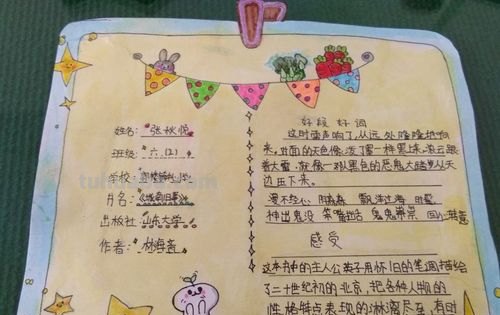 姓名：张秋悦
班级：六.(2)
学校：
书名：《城南旧事》
出版社：山东大学
作者：林海音
好段 好词
这时雷声响了，从远处隆隆地响
来，对面的天色像泼了墨一样黑，浓云跟
着大雷，就像一队黑色的恶鬼大踏步从天
边压下来。
漫不经心 阴森森 飘洋过海
神出鬼没 鬼鬼祟祟 回心转意
感受
这本书中的主人公英子用怀旧的笔调描绘
了二十世纪初的北京，把各种人物的
性格特点表现的淋漓尽至，有时